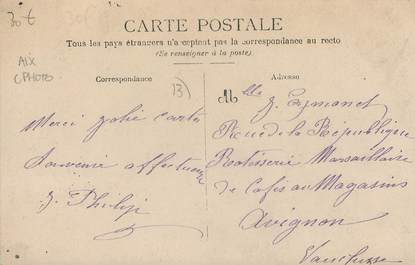 30 t
AIX
CPHOTO
CARTE POSTALE
Tous les pays étrangers n'acceptent pas la correspondance au recto
(Se renseigner à la poste)
Correspondance
Adresse
13
Merci jolie carte
Souvenir affectueux
J. Philip
Mlle J. Eymonet
Rue de la République
Rotisserie Marseillaise
de Cafés au Magasins
Avignon
Vaucluse